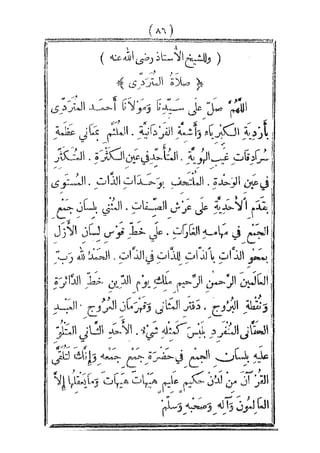 ( ٨٦ )
( وللشيخ الأستاذ رضى الله عنه )
﴿ صلاة المتردى ﴾
اللهم صل على سيدنا ومولانا أحمد المتردى
بأردية الكبرياء وأشعة الفردانية . الملثم بمعاني عظمة
سرادقات غيب الهوية . المتأحد في عين الكثرة . المتكثر
في عين الوحدة . الملتحف بوحدات الذات . المستوى
بقدم الأحدية على عرش الصفات . المثني بلسان جمع
الجمع في مهامه القارات . على خط قوس لسان الأزل
بمحو الذات بالذات للذات في الذات . الحمد لله رب
العالمين الرحمن الرحيم ملك يوم الدين خط الدائرة
ونقطة البروج . دفتر المثانى وقهرمان العروج . العبد
الحقانى المتفرد بليس كمثله شيء . الأحمد الثاني المتلو
عليه بلسان الجمع في حضرة جمع جمعه وإنك لتلقى
القرآن من لدن حكيم عليم هيهات هيهات وما يعقلها إلا
العالمون وآله وصحبه وسلم